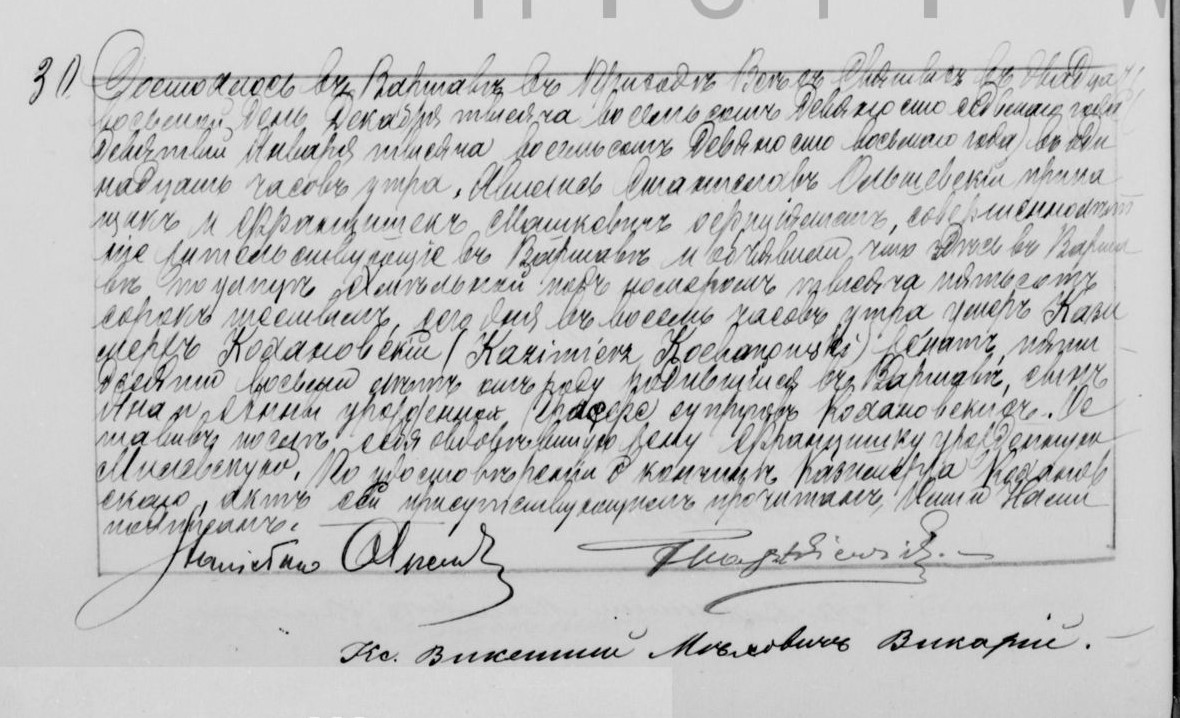 30
Состоялось въ Варшавѣ въ Приходѣ Всѣхъ Святыхъ въ двадца
восьмой день Декабря тысяча восемьсотъ Девяносто седьмаго года
девятый Января тысяча восемьсотъ Девяносто восьмаго года) въ оди
надцать часовъ утра. Явились Станиславъ Ольшевскій прика
щикъ и Францишекъ Машкевичъ совершеннолѣт
ніе жительствующіе въ Варшавѣ и объявили что здѣсь въ Варша
вѣ по улицѣ Хмѣльной подъ номеромъ тысяча пятьсотъ
сорокъ сего дня въ восемь часовъ утра умеръ Кази
меръ Кохановскій (Kazimierz Kochanowski) женатъ, пяти
десяти восьми лѣтъ отъ роду родившійся въ Варшавѣ, сынъ
Яна и Анны урожденной супруговъ Кохановскихъ. Ос
тавивъ послѣ себя овдовѣвшую жену Францишку урожденную
По удостовѣреніи о кончинѣ Казимера Кохановс
скаго, актъ сей присутствующимъ прочитанъ, Ими и Нами
подписанъ.
Stanisław
Кс. Викентій Мѣховичъ Викарій.